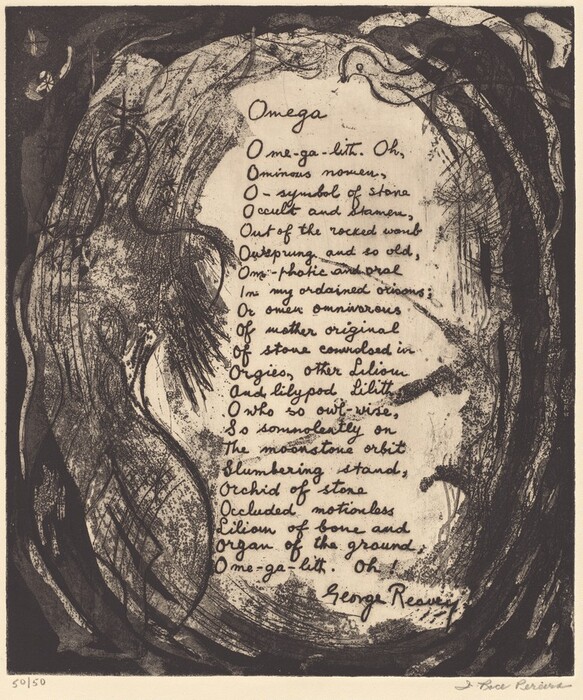 Omega
O me-ga-lith. Oh,
Ominous nomen,
O-symbol of stone
Occult and stamen,
Out of the rocked womb
Outsprung and so old,
Om-phatic and oral
In my ordained orisons;
Or omen omnivorous
Of mother original
Of stone convulsed in
Orgies, other Lilium
And lilypod Lilith
O who so owl-wise,
So somnolently on
The moonstone orbit
Slumbering stand,
Orchid of stone
Occluded motionless
Lilium of bone and
Organ of the ground,
O me-ga-lith. Oh!
George Reavey
50/50
I Rice Pereira